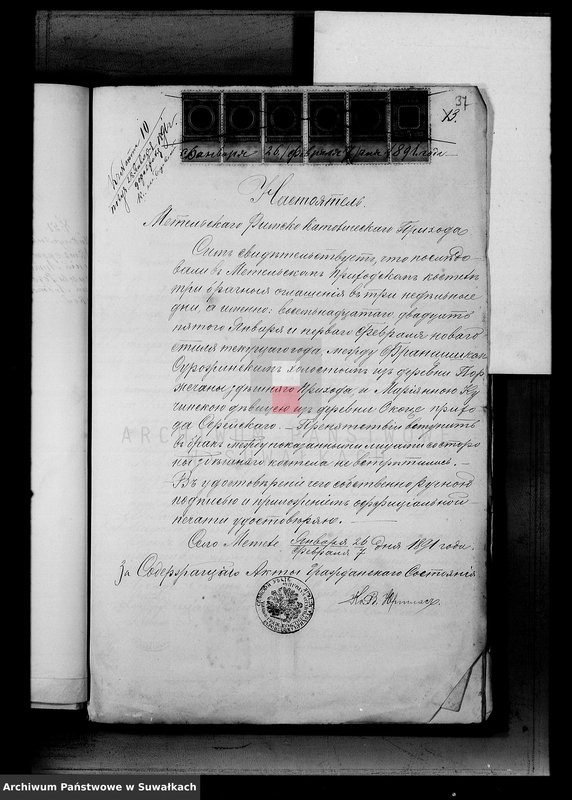 37
13.
10
Января 26/Февраля 7 дня 1891 года
Настоятель
Метельского Римско Католического Прихода
Симъ свидѣтельствуетъ, что послѣдо-
вали въ Метельскомъ Приходскомъ костелѣ
три брачныя оглашенія въ три недѣльные
дни, а именно: восемнадцатаго, двадцать
пятого Января и перваго Февраля новаго
стиля текущаго года, между Францишкомъ
холостымъ изъ деревни
здѣшняго прихода, и Маріянною
дѣвицею изъ деревни прихо-
да Серейскаго. — Препятствій вступить
въ бракъ между показанными лицами со сторо-
ны здѣшняго костела не вступилось. —
Въ удостовѣреніи чего собственно ручною
подписью и приложеніемъ оффиціальной
печати удостовѣряю. —
Село Метеле Января 26 / Февраля 7 дня 1891 года.
За Содержащаго Акты Гражданскаго Состоянія
Кс. В.
ARCHIWUM PAŃSTWOWE
W SUWAŁKACH
Archiwum Państwowe w Suwałkach